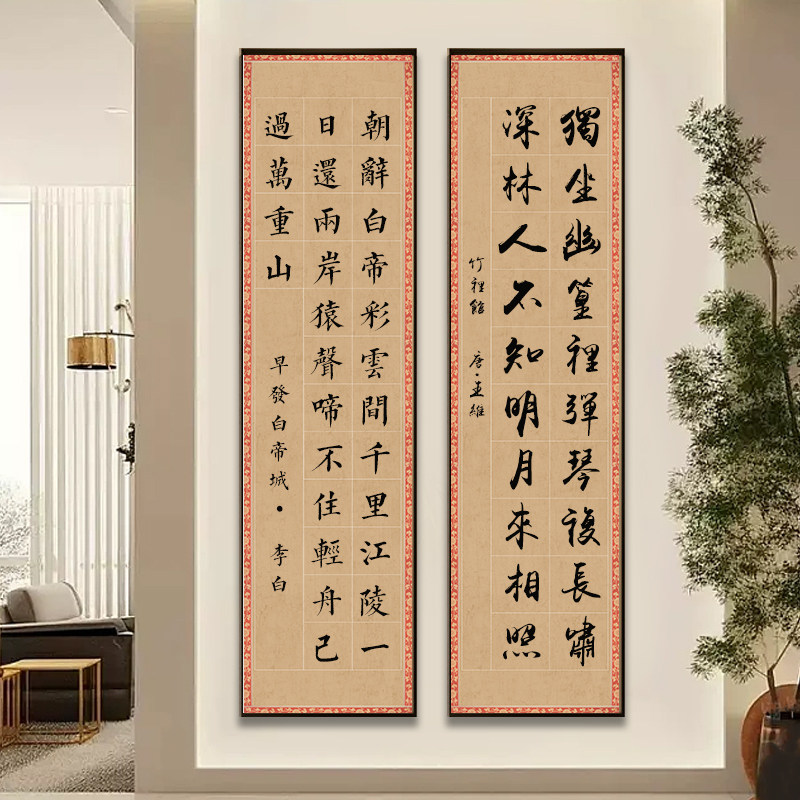 獨坐幽篁裡彈琴複長嘯
深林人不知明月來相照
竹裡館 唐·王維
朝辭白帝彩雲間千里江陵一
日還兩岸猿聲啼不住輕舟已
過萬重山
早發白帝城· 李白